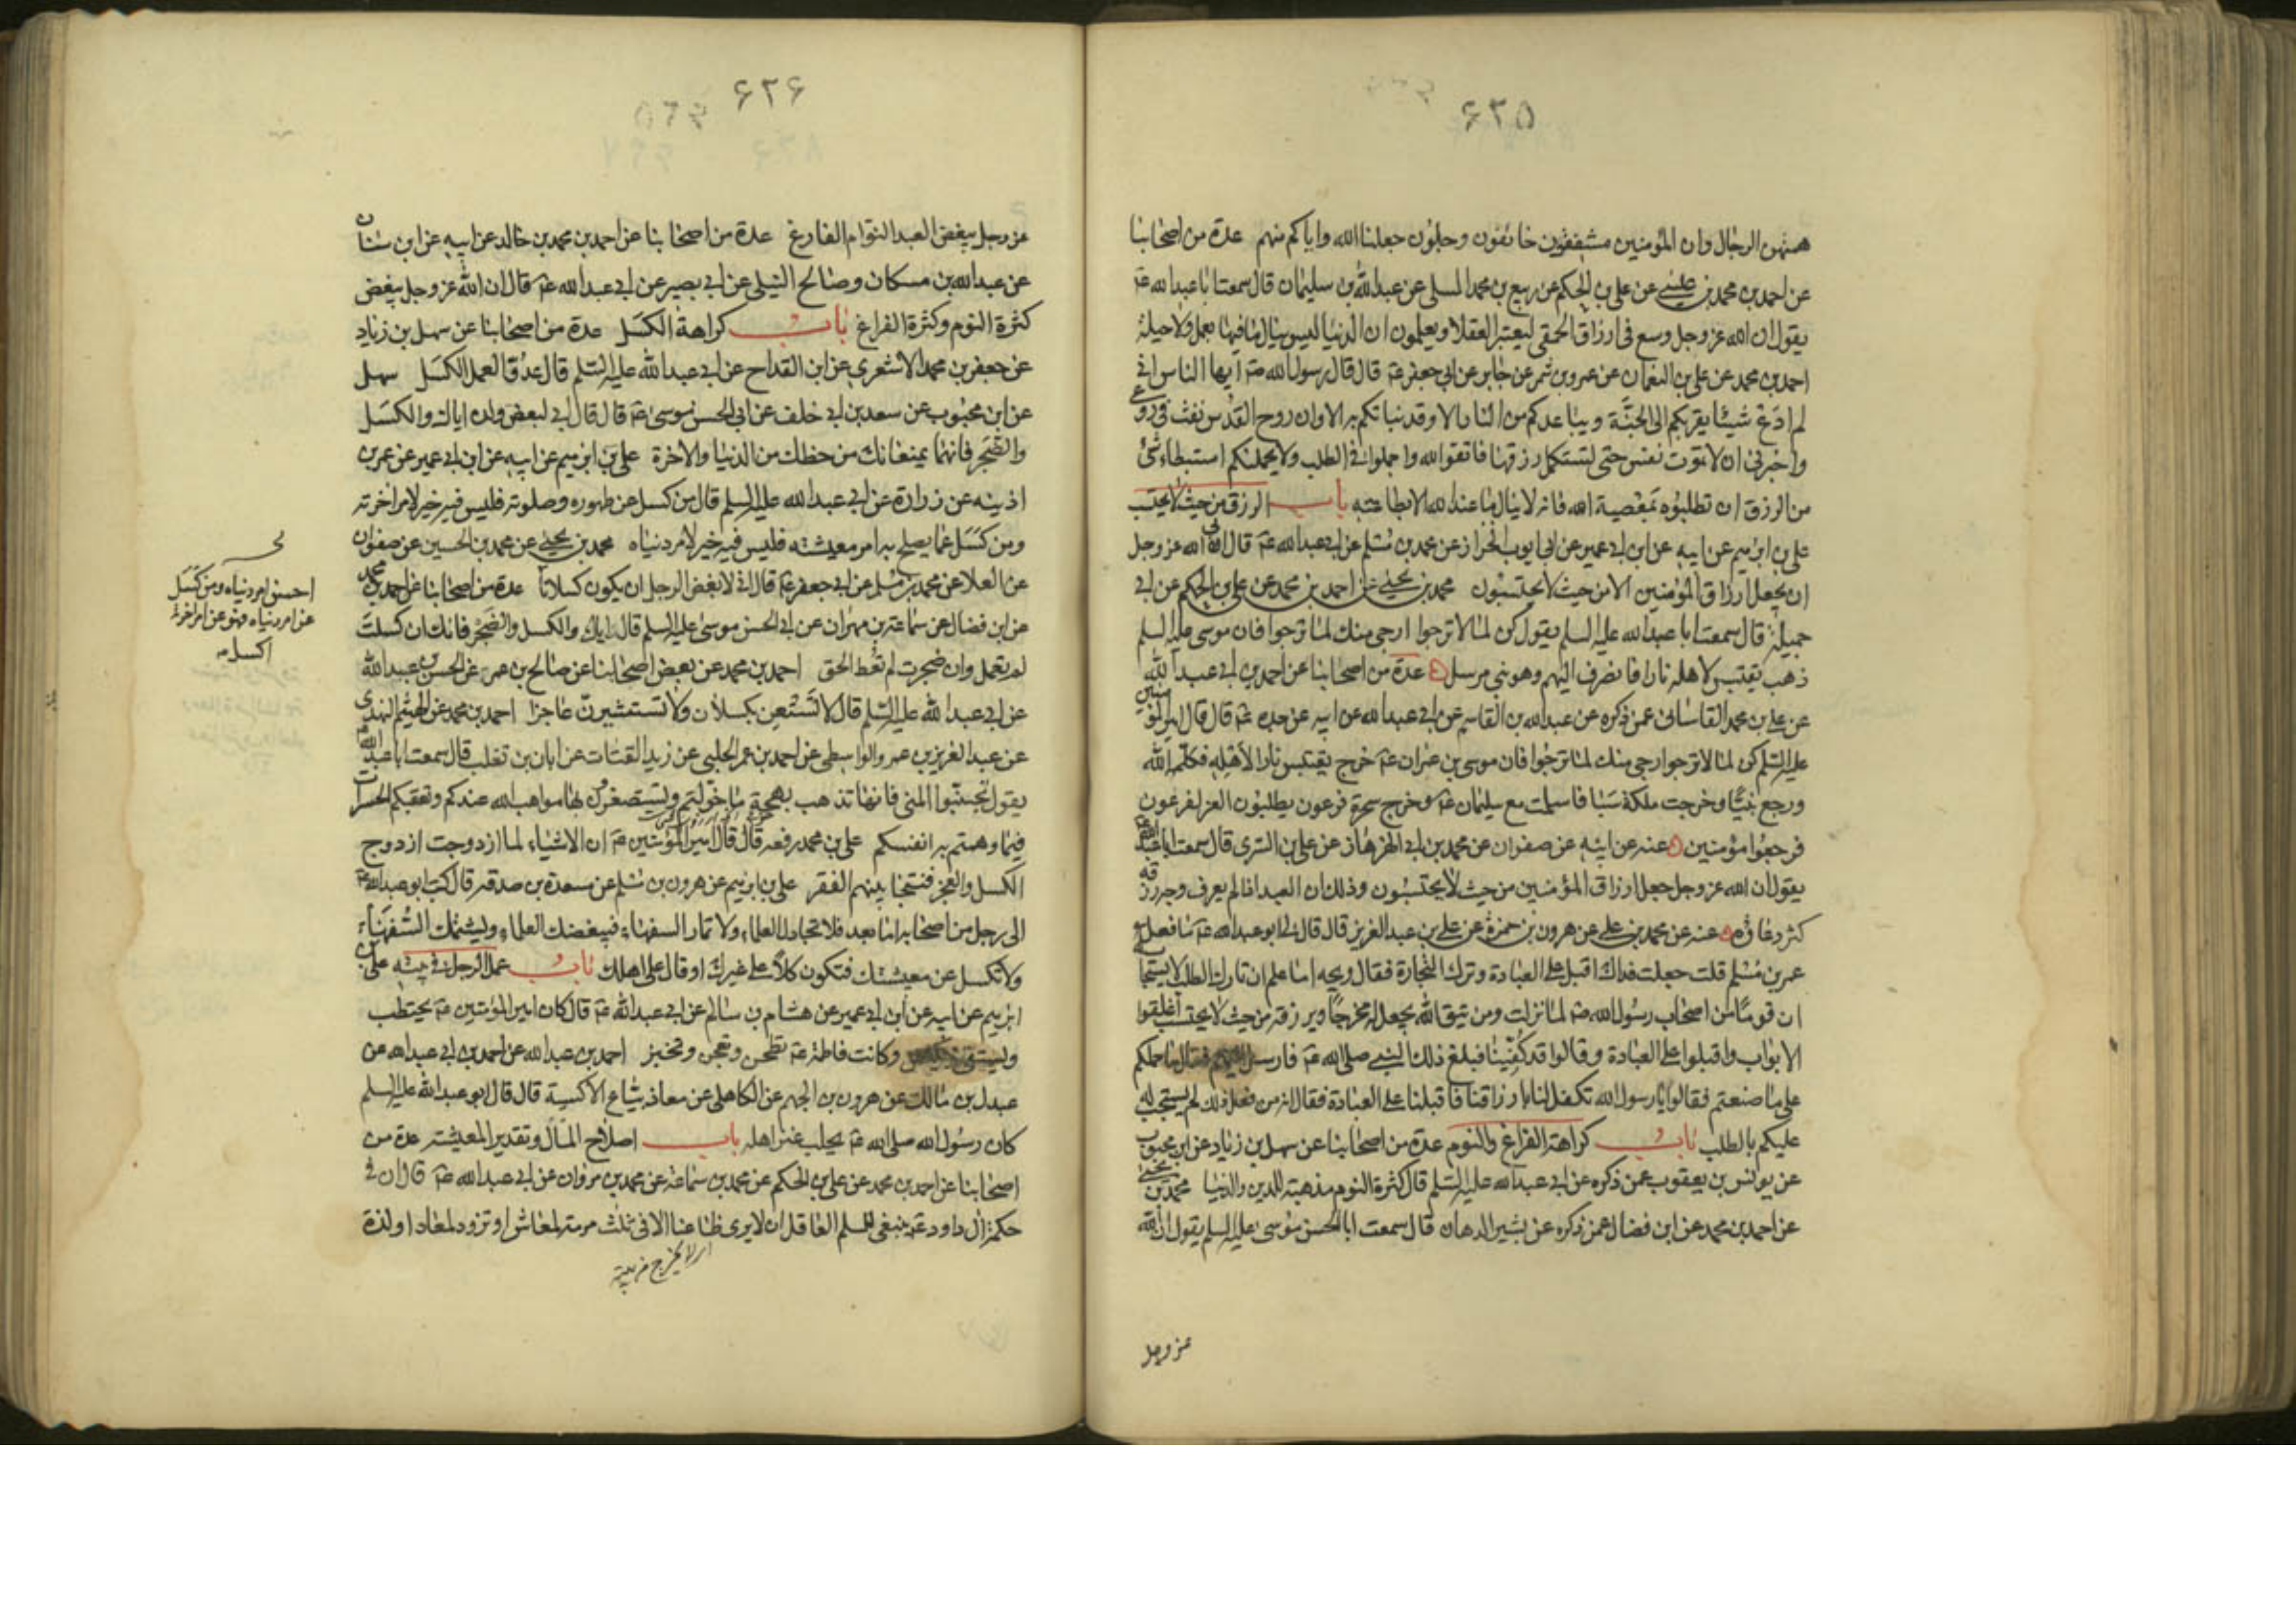 ۶۲۵
همتهن الرجال وان المؤمنين مشفقون خائفون وجلون جعلنا الله واياكم منهم عدة من اصحابنا
عن احمد بن محمد بن عيسى عن على بن الحكم عن ربيع بن محمد المسلى عن عبد الله بن سليمان قال سمعت ابا عبد الله عم
يقول ان الله عز وجل وسع فى ارزاق الحمقى ليعتبر العقلا ويعلمون ان الدنيا ليس ينال ما فيها بعمل ولا حيلة
احمد بن محمد عن على بن النعمان عن عمرو بن شمر عن جابر عن ابى جعفر عم قال قال رسول الله صم ايها الناس انى
لم ادع شيئا يقربكم الى الجنة ويباعدكم من النار الا وقد نباتكم به الا وان روح القدس نفث فى روعى
واخبرنى ان لا تموت نفس حتى تستكمل رزقها فاتقوا الله واجملوا فى الطلب ولا يحملنكم استبطاء شئ
من الرزق ان تطلبوه بمعصية الله فانه لا ينال ما عند الله الا بطاعته باب الرزق من حيث لا يحتسب
على بن ابرهيم عن ابيه عن ابن ابى عمير عن ابى ايوب الخزاز عن محمد بن مسلم عن ابى عبد الله عم قال ابى الله عز وجل
ان يجعل ارزاق المؤمنين الا من حيث لا يحتسبون محمد بن يحيى عن احمد بن محمد عن على بن الحكم عن ابى
جميلة قال سمعت ابا عبد الله عليه السلم يقول كن لما لا ترجوا ارجى منك لما ترجوا فان موسى عليه السلم
ذهب يقتبس لاهله نارا فانصرف اليهم وهو نبى مرسل عدة من اصحابنا عن احمد بن ابى عبد الله
عن على بن محمد القاسانى عمن ذكره عن عبد الله بن القاسم عن ابى عبد الله عن ابيه عن جده عم قال قال امير المؤمنين
عليه السلم كن لما لا ترجوا ارجى منك لما ترجوا فان موسى بن عمران عم خرج يقتبس نارا لاهله فكلمه الله
ورجع نبيا وخرجت ملكة سبا فاسلمت مع سليمان عم وخرج سحرة فرعون يطلبون العز لفرعون
فرجعوا مؤمنين عنه عن ابيه عن صفوان عن محمد بن ابى الهزهاز عن على بن السرى قال سمعت ابا عبد الله عم
يقول ان الله عز وجل جعل ارزاق المؤمنين من حيث لا يحتسبون وذلك ان العبد اذا لم يعرف وجه رزقه
كثر دعاؤه عنه عن محمد بن على عن هرون بن حمزة عن على بن عبد العزيز قال قال لى ابو عبد الله عم ما فعل
عمر بن مسلم قلت جعلت فداك اقبل على العبادة وترك التجارة فقال ويحه اما علم ان تارك الطلب لا يستجاب
ان قوما من اصحاب رسول الله صم لما نزلت ومن يتق الله يجعل له مخرجا ويرزقه من حيث لا يحتسب اغلقوا
الابواب واقبلوا على العبادة وقالوا قد كفينا فبلغ ذلك النبى صلى الله عم فارسل اليهم فقال ما حملكم
على ما صنعتم فقالوا يا رسول الله تكفل لنا بارزاقنا فاقبلنا على العبادة فقال انه من فعل ذلك لم يستجب له
عليكم بالطلب باب كراهة الفراغ والنوم عدة من اصحابنا عن سهل بن زياد عن ابن محبوب
عن يونس بن يعقوب عمن ذكره عن ابى عبد الله عليه السلم قال كثرة النوم مذهبة للدين والدنيا محمد بن يحيى
عن احمد بن محمد عن ابن فضال عمن ذكره عن بشير الدهان قال سمعت ابا الحسن موسى عليه السلم يقول ان الله
عز وجل
۶۲۶
عز وجل يبغض العبد النوام الفارغ عدة من اصحابنا عن احمد بن محمد بن خالد عن ابيه عن ابن سنان
عن عبد الله بن مسكان وصالح النيلى عن ابى بصير عن ابى عبد الله عم قال ان الله عز وجل يبغض
كثرة النوم وكثرة الفراغ باب كراهة الكسل عدة من اصحابنا عن سهل بن زياد
عن جعفر بن محمد الاشعرى عن ابن القداح عن ابى عبد الله عليه السلم قال عدو العمل الكسل سهل
عن ابن محبوب عن سعد بن ابى خلف عن ابى الحسن موسى عم قال قال ابى لبعض ولده اياك والكسل
والضجر فانهما يمنعانك من حظك من الدنيا والاخرة على بن ابرهيم عن ابيه عن ابن ابى عمير عن عمر بن
اذينه عن زرارة عن ابى عبد الله عليه السلم قال من كسل عن طهوره وصلوته فليس فيه خير لامر اخرته
ومن كسل عما يصلح به امر معيشته فليس فيه خير لامر دنياه محمد بن يحيى عن محمد بن الحسين عن صفوان
عن العلا عن محمد بن مسلم عن ابى جعفر عم قال انى لابغض الرجل ان يكون كسلانا عدة من اصحابنا عن احمد بن محمد
عن ابن فضال عن سماعة بن مهران عن ابى الحسن موسى عليه السلم قال اياك والكسل والضجر فانك ان كسلت
لم تعمل وان ضجرت لم تعط الحق احمد بن محمد عن بعض اصحابنا عن صالح بن عمر عن الحسن بن عبد الله
عن ابى عبد الله عليه السلم قال لا تستعن بكسلان ولا تستشيرن عاجزا احمد بن محمد عن الهيثم النهدى
عن عبد العزيز بن عمرو الواسطى عن احمد بن عمر الحلبى عن زيد القتات عن ابان بن تغلب قال سمعت ابا عبد الله عم
يقول تجنبوا المنى فانها تذهب بهجة ما خولتم وتستصغرون بها مواهب الله عندكم وتعقبكم الحسرات
فيما وهمتم به انفسكم على بن محمد رفعه قال قال امير المؤمنين عم ان الاشياء لما ازدوجت ازدوج
الكسل والعجز فنتجا بينهم الفقر على بن ابرهيم عن هرون بن مسلم عن مسعدة بن صدقه قال كتب ابو عبد الله عم
الى رجل من اصحابه اما بعد فلا تجادل العلماء ولا تمار السفهاء فيبغضك العلماء ويشتمك السفهاء
ولا تكسل عن معيشتك فتكون كلا على غيرك او قال على اهلك باب عمل الرجل فى بيته على بن
ابرهيم عن ابيه عن ابن ابى عمير عن هشام بن سالم عن ابى عبد الله عم قال كان امير المؤمنين عم يحتطب
ويستقى وكانت فاطمة عم تطحن وتعجن وتخبز احمد بن عبد الله عن احمد بن ابى عبد الله عن
عبدل بن مالك عن هرون بن الجهم عن الكاهلى عن معاذ بياع الاكسية قال قال ابو عبد الله عليه السلم
كان رسول الله صلى الله عم يحلب عنز اهله باب اصلاح المال وتقدير المعيشة عدة من
اصحابنا عن احمد بن محمد عن على بن الحكم عن محمد بن سماعة عن محمد بن مروان عن ابى عبد الله عم قال ان فى
حكمة ال داود عم ينبغى للمسلم العاقل ان لا يرى ظاعنا الا فى ثلث مرمة لمعاش او تزود لمعاد او لذة
احسن امر دنياه ومن كسل
عن امر دنياه فهو عن امر اخرته
اكسل